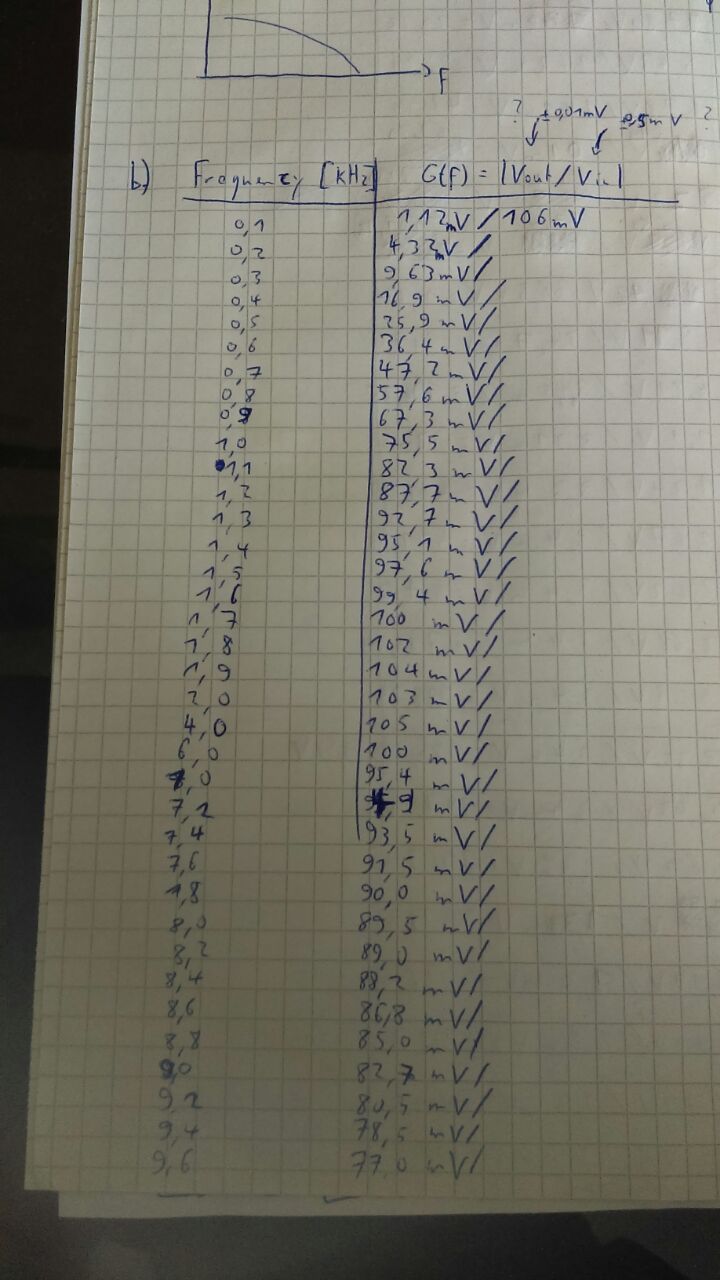 F
? ±0,01mV ±0,5mV ?
b) Frequency [kHz] G(f) = |Vout/Vin|
0,1 1,12mV/106mV
0,2 4,32mV/
0,3 9,63mV/
0,4 16,9mV/
0,5 25,9mV/
0,6 36,4mV/
0,7 47,2mV/
0,8 57,6mV/
0,9 67,3mV/
1,0 75,5mV/
1,1 82,3mV/
1,2 87,7mV/
1,3 92,7mV/
1,4 95,1mV/
1,5 97,6mV/
1,6 99,4mV/
1,7 100 mV/
1,8 102 mV/
1,9 104mV/
2,0 103 mV/
4,0 105 mV/
6,0 100 mV/
,0 95,4 mV/
7,2 mV/
7,4 93,5 mV/
7,6 91,5 mV/
7,8 90,0 mV/
8,0 89,5 mV/
8,2 89,0 mV/
8,4 88,2 mV/
8,6 86,8 mV/
8,8 85,0 mV/
9,0 82,7 mV/
9,2 80,5 mV/
9,4 78,5 mV/
9,6 77,0 mV/